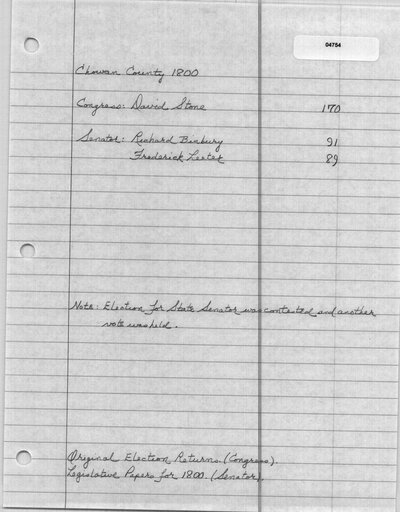 04754
Chowan County 1800
Congress: David Stone 170
Senator: Richard Benbury 91
Frederick Lester 89
Note: Election for State Senator was contested and another
vote was held.
Original Election Returns. (Congress).
Legislative Papers for 1800. (Senator).